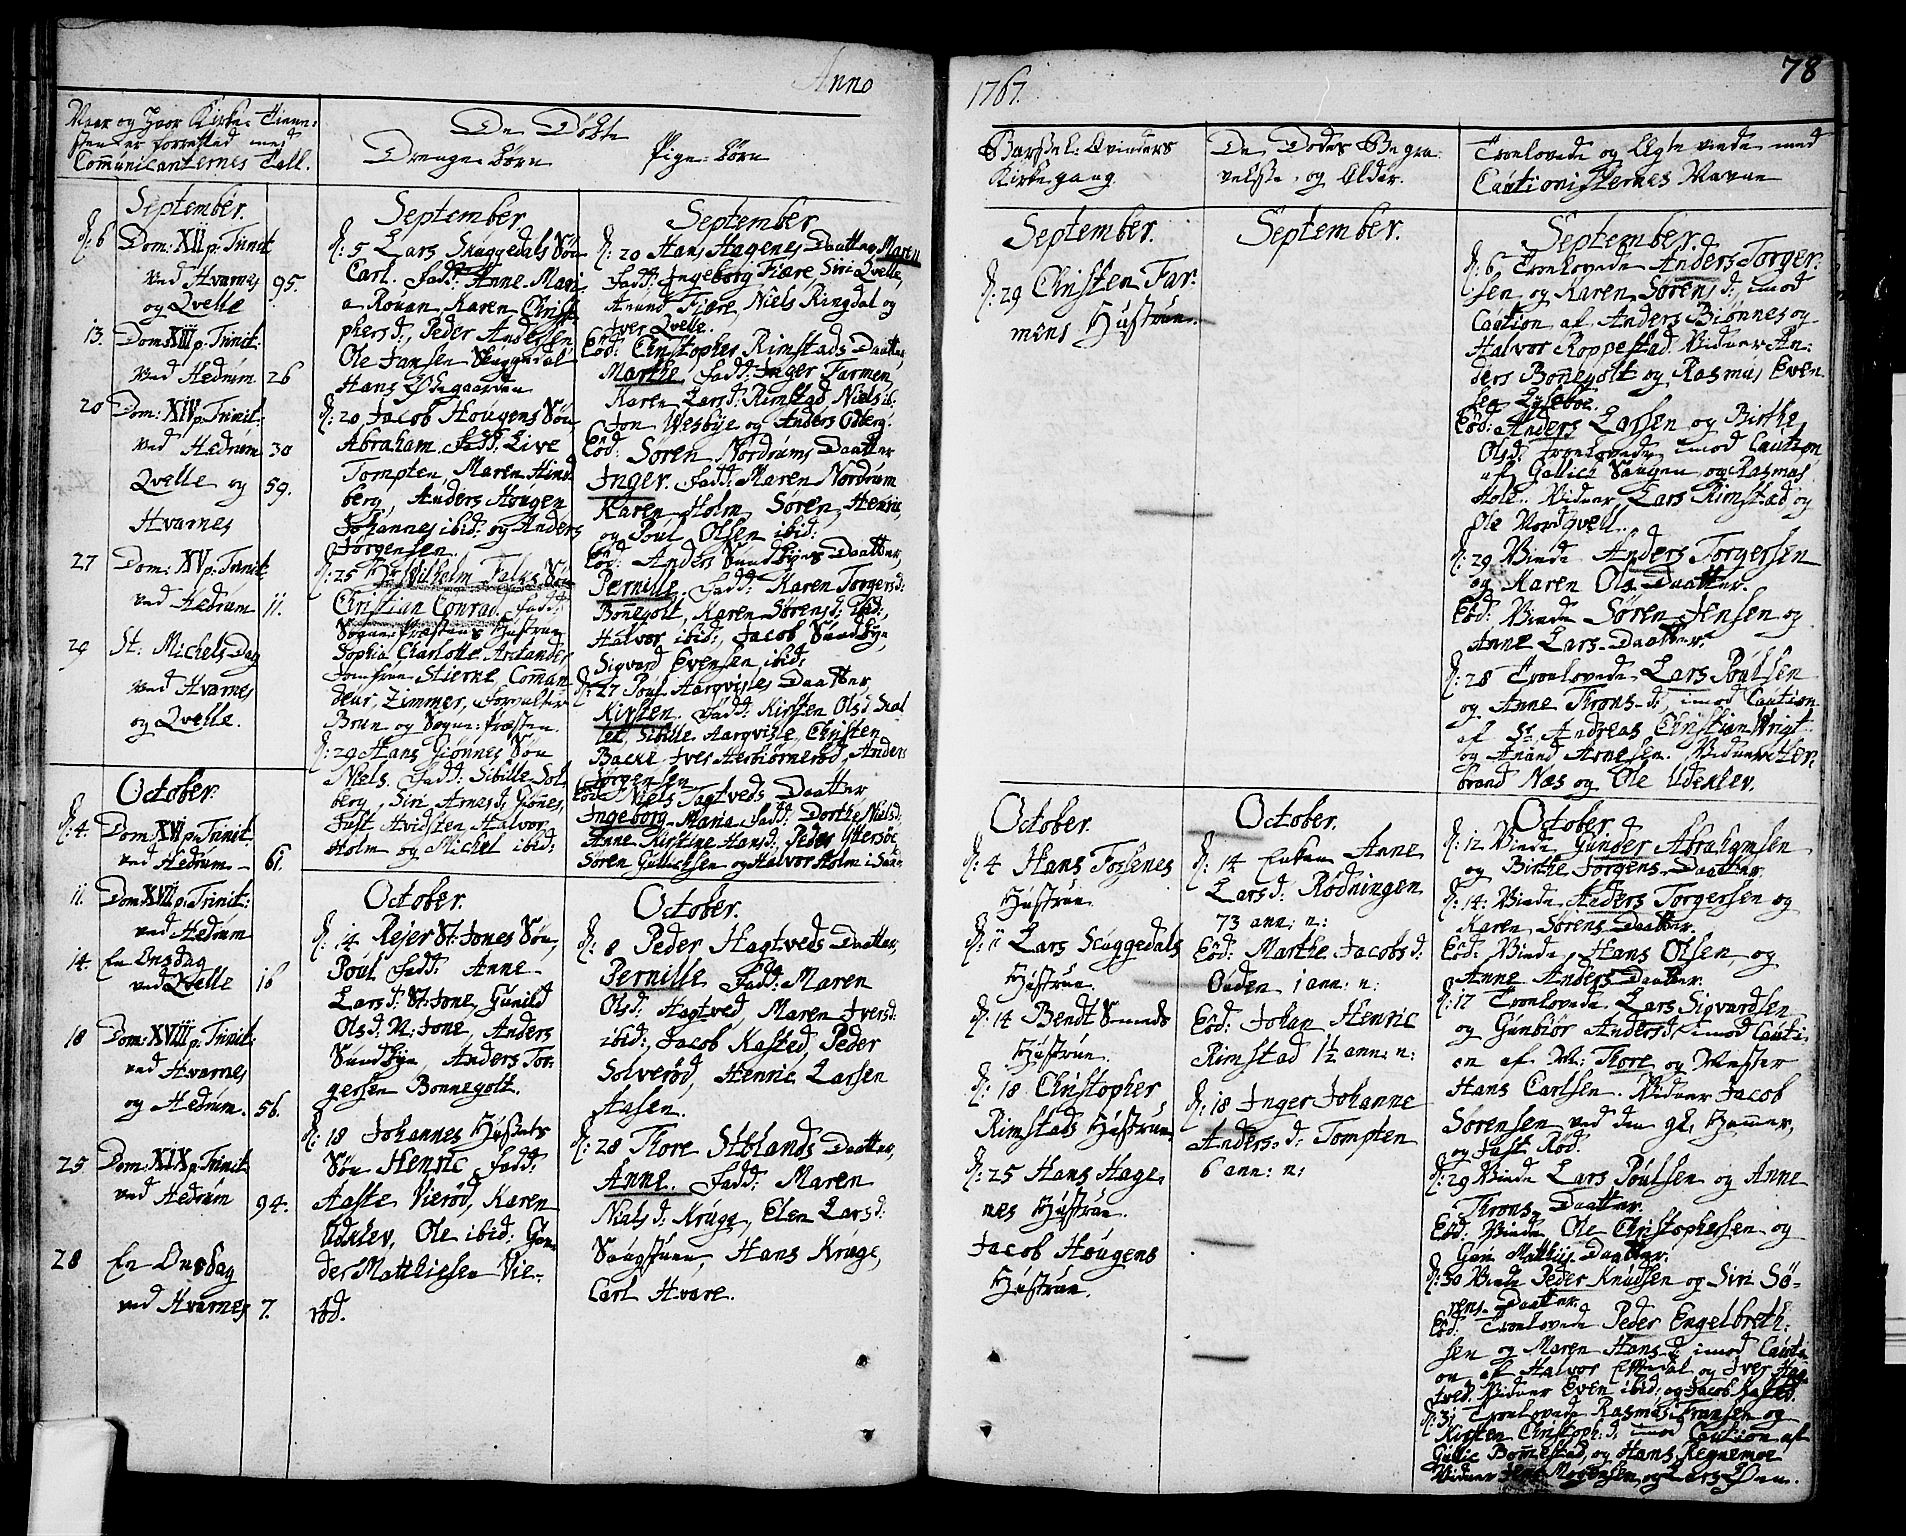 Anno
Naar og hvor Kirke-Tiene-
sten er forretted med
Communicanternes Tall.
De Døbte
Drenge-børn
Pige-børn
September.
d: 6 Dom: XII p: Trinit:
ved Hvarnes 95.
og Qvelle
13. Dom: XIII p: Trinit:
ved Hedrum 26
20 Dom: XIV p: Trinit:
ved Hedrum 30
Qvelle og 59.
Hvarnes
27 Dom: XV p: Trinit:
ved Hedrum 11.
29 St: Michels Dag
ved Hvarnes
og Qvelle.
October.
d: 4. Dom: XVI p: Trinit:
ved Hedrum 61.
11. Dom: XVII p: Trinit:
ved Hedrum
14. En Onsdag
ved Qvelle 16
18 Dom: XVIII p: Trinit:
ved Hvarnes
og Hedrum. 56.
25 Dom: XIX p: Trinit:
ved Hedrum 94.
28 En Onsdag
ved Hvarnes 7.
September
d: 5 Lars Skuggedals Søn
Carl. fadd: Anne Mari
a Rouan, Karen Christ
phersd:, Peder Andersen
Ole Jansen Skuggedal
Hans Ødegaarden
d: 20 Jacob Hougens Søn
Abraham fadd: Live
Tompten, Maren Hvid
berg, Anders Hougen
Johannes ibid: og Anders
Jørgensen.
d: 25 Hr Wilhelm Falks Søn
Christian Conrad. fadd:
Sogne-Præstens Hustrue
Sophia Charlotte Arctander
Jomfrue Stierne, Comman
deur Zimmer, Forvalter
Brun og Sogne-Præsten.
d: 29 Hans Giønnes Søn
Niels. fadd: Sibille Sol
berg, Siri Arnesd: Giønnes,
Just Hvidsten Halvor
Holm og Michel ibid:
October.
d: 14 Rejer St: Jones Søn,
Poul fadd: Anne
Larsd: St: Jone, Gunild
Olsd: N: Jone, Anders
Sundbye Anders Tor-
gersen Bonnegolt.
d: 18 Johannes Husebs
Søn Henric fadd:
Aaste Vierød, Karen
Odklev, Ole ibid: Gun-
der Mathiesen Vie-
rød.
September
d: 20 Hans Hagenes Daatter Maren
fadd: Ingeborg Fiære, Siri Qvelle,
Anund Fiære, Niels Ringdal og
Iver Qvelle.
Eod: Christopher Rimstads Daatter,
Marthe fadd: Inger Farmen,
Karen Larsd: Rimstad Niels ib:
Jon Wesbye og Anders Odberg.
Eod: Søren Nordrums Daatter
Inger. fadd: Maren Nordrum
Karen Holm Søren, Henric,
og Poul Olsen ibid:
Eod: Anders Sundbyes Daatter,
Pernille. fadd: Karen Torgersd:
Bonnegolt, Karen Sørensd: ibid:,
Halvor ibid:, Jacob Sundbye,
Sigvard Evensen ibid:
d: 27 Poul Aarqvisles Daatter
Kirsten. fadd: Kirsten Olsd
Sibille Aarqvisle, Christen
Backe Iver Anders
Jørgensen
Eod: Niels Tagtveds Daatter
Ingeborg Maria fadd: Dorthe Nielsd:
Anne Kirstine Hansd: Peder Yttersøe
Søren Gullichsen og Halvor Holm i
October.
d: 8 Peder Hagtveds Daatter,
Pernille fadd: Maren
Olsd: Hagtved, Maren Iversd:
ibid:, Jacob Kasted, Peder
Solverød, Henric Larsen
Aasen.
d: 28 Thore Stblands Daatter,
Anne. fadd: Maren
Nielsd: Kruge, Elen Larsd:
Saugstuen, Hans Kruge,
Carl Hvare.
1767.
78
Barsel-Qvinders
Kirkegang.
De Dødes Begra-
velse og Alder.
Troelovede og Ægteviede med
Cautionisternes Navne
September.
d: 29 Christen Far-
mens Hustrue.
October.
d: 4 Hans Fossenes
Hustrue.
d: 11 Lars Scuggedals
Hustrue.
d: 14 Bendt Smeds
Hustrue.
d: 18 Christopher
Rimstads Hustrue
d: 25 Hans Hage-
nes Hustrue.
Jacob Hougens
Hustrue.
September.
October.
d: 14 Enken Anne
Larsd: Rødningen
73 ann: n:
Eod: Marthe Jacobsd:
Ouden 1 ann: n:
Eod: Johan Henric
Rimstad 1½ ann: n:
d: 18 Inger Johanne
Anders: d: Tompten
6 ann: n:
September.
d: 6 Troelovede Anders Torger-
sen og Karen Sørensd: imod
Caution af Anders Biønnes og
Halvor Roppestad. Vidner An-
ders Bonnegolt og Rasmus Even
sen Lyseboe.
Eod: Anders Larsen og Birthe
Olsd: troelovede imod Caution
af Gullich Saugen og Rasmus
Holt. Vidner Lars Rimstad og
Ole Nordqvell.
d: 29 Viede Anders Torgersen
og Karen Ols-Daatter.
Eod: Viede Søren Jensen og
Anne Lars-Daatter.
d: 28 Troelovede Lars Poulsen
og Anne Throns-d: imod Caution
af Sr Andreas Christian Wrigt
og Anund Arnesen. Vidner
brand Næs og Ole Udeklev.
October
d: 12 Viede Gunder Abrahamsen
og Birthe Jørgens-Daatter
d: 14: Viede Anders Torgersen og
Karen Sørens Daatter.
Eod: Viede Hans Olsen, og
Anne Anders Daatter.
d: 17 Troelovede Lars Sigvardsen
og Gunbiør Andersd: imod Cauti-
on af M: Thore og Mester
Hans Carlsen. Vidner Jacob
Sørensen ved den gl: Hammer,
og Just Rød.
d: 29 Viede Lars Poulsen og Anne
Throns-Daatter.
Eod: Viede Ole Christophersen og
Mathis-Daatter.
d: 30 Viede Peder Knudsen og Siri Sø-
rens-Daatter.
Eod: Troelovede Peder Engelbreth-
sen og Maren Hans-d: imod Cauti-
on af Halvor og Iver Hag-
tved. Vidner Even ibid: og Jacob Kasted.
d: 31 Troelovede Rasmus Fransen og
Kirsten Christoph: d: imod Caution af
Gullic Bommestad, og Hans Regnemoe
Vidner Jens Mogensen og Lars Øen.